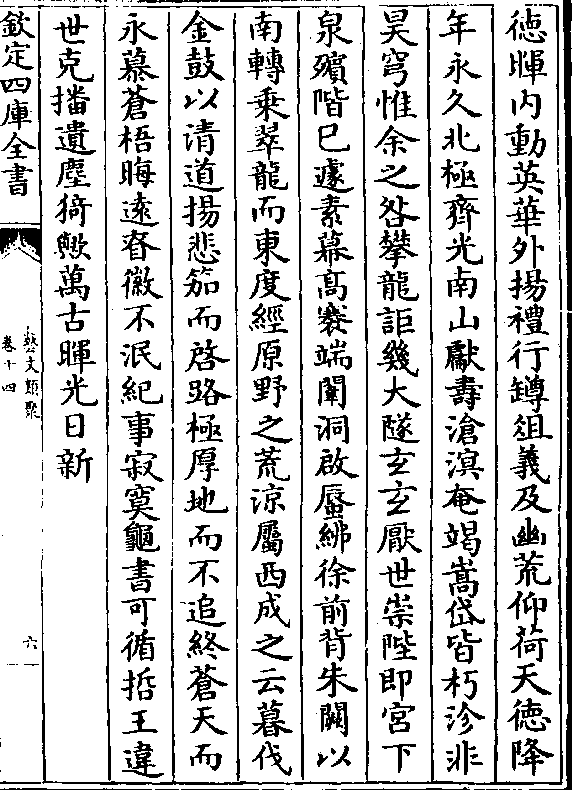 德暉内動英華外揚禮行罇俎義及幽荒仰荷天徳降
年永久北極齊光南山獻壽滄溟奄竭嵩岱皆朽沴非
昊穹惟余之咎攀龍詎幾大隧玄玄厭世崇陛即宮下
泉殯階巳遽素幕髙褰端闈洞啟蜃綍徐前背朱闕以
南轉乗翠龍而東度經原野之荒凉屬西成之云暮伐
金鼓以清道揚悲笳而啓路極厚地而不追終蒼天而
永慕蒼梧晦逺睿徽不泯紀事寂寞龜書可循哲王違
世克播遺塵猗歟萬古暉光日新
欽定四庫全書
藝文類聚
卷十四
六